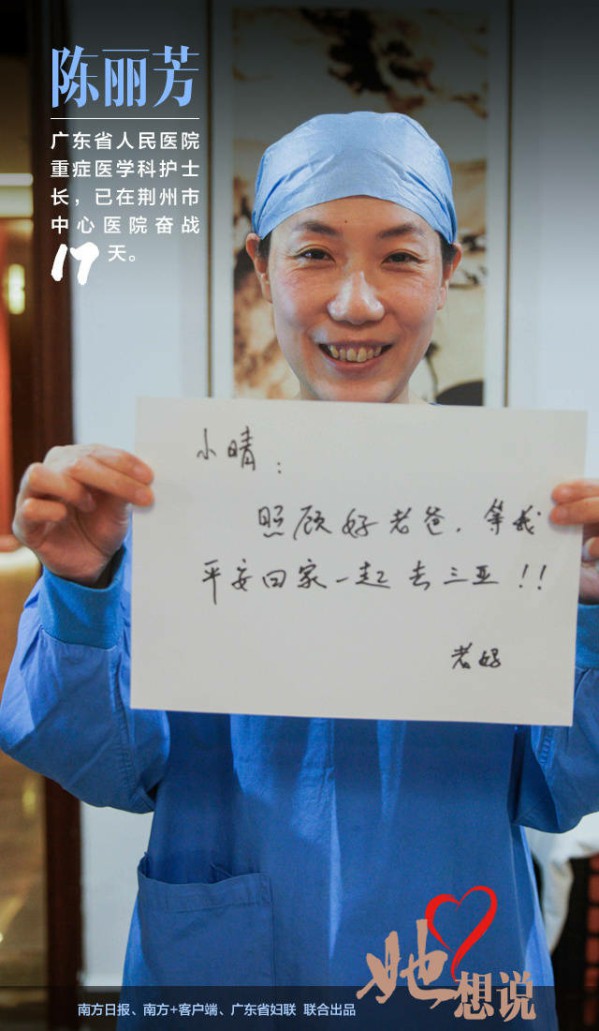 陈丽芳
广东省人民医院
重症医学科护士
长，已在荆州市
中心医院奋战
17天。
小晴：
照顾好老爸，等我
平安回家一起去三亚！！
老妈
她想说
南方日报、南方+客户端、广东省妇联 联合出品